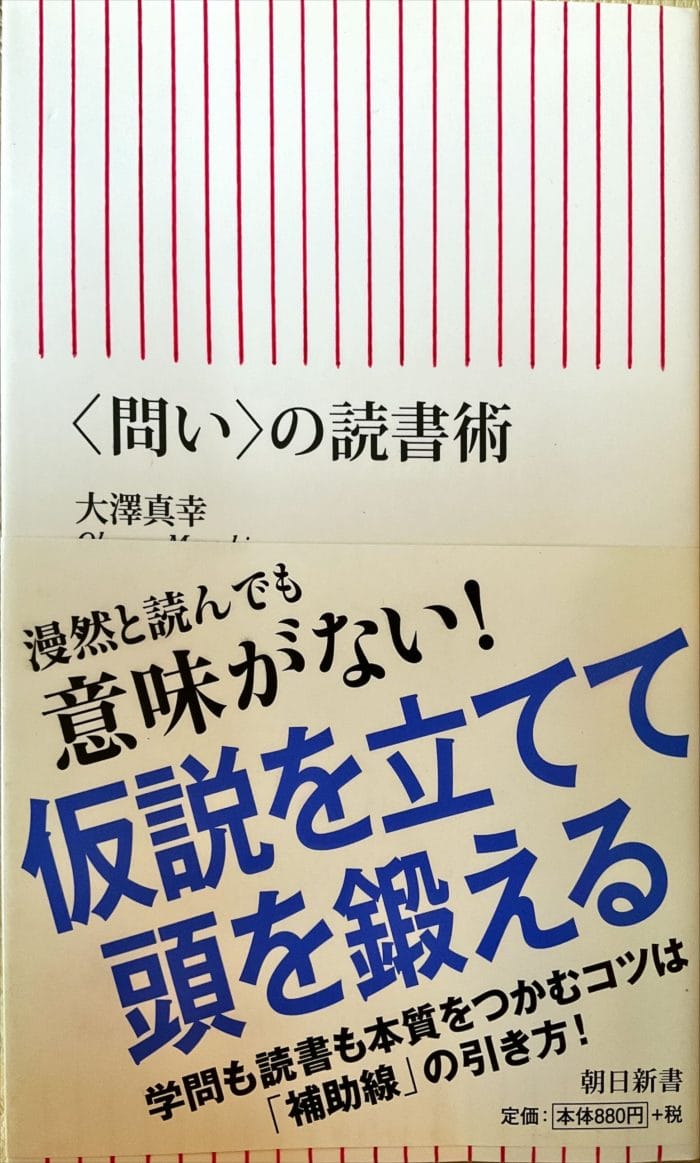 〈問い〉の読書術
大澤真幸
漫然と読んでも
意味がない!
仮説を立てて
頭を鍛える
学問も読書も本質をつかむコツは
「補助線」の引き方!
朝日新書
定価:本体880円+税